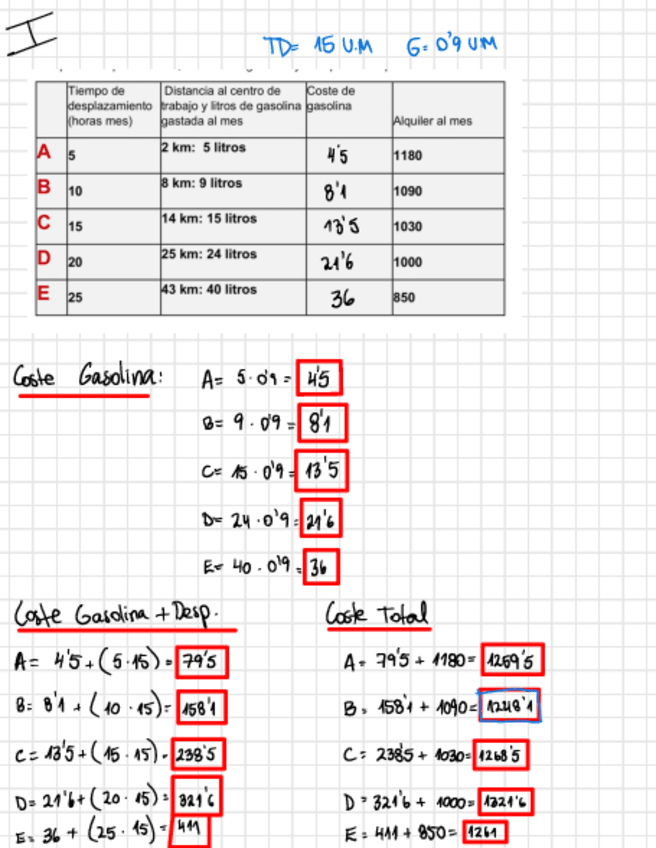 I
TD= 15 U.M G= 0'9 UM
Tiempo de desplazamiento (horas mes) Distancia al centro de trabajo y litros de gasolina gastada al mes Coste de gasolina Alquiler al mes
A 5 2 km: 5 litros 4'5 1180
B 10 8 km: 9 litros 8'1 1090
C 15 14 km: 15 litros 13'5 1030
D 20 25 km: 24 litros 21'6 1000
E 25 43 km: 40 litros 36 850
Coste Gasolina:
A= 5·0'9= 4'5
B= 9·0'9= 8'1
C= 15·0'9= 13'5
D= 24·0'9= 21'6
E= 40·0'9= 36
Coste Gasolina + Desp.
A= 4'5+(5·15)= 79'5
B= 8'1+(10·15)= 158'1
C= 13'5+(15·15)= 238'5
D= 21'6+(20·15)= 321'6
E= 36+(25·15)= 411
Coste Total
A= 79'5+1180= 1259'5
B= 158'1+1090= 1248'1
C= 238'5+1030= 1268'5
D= 321'6+1000= 1321'6
E= 411+850= 1261